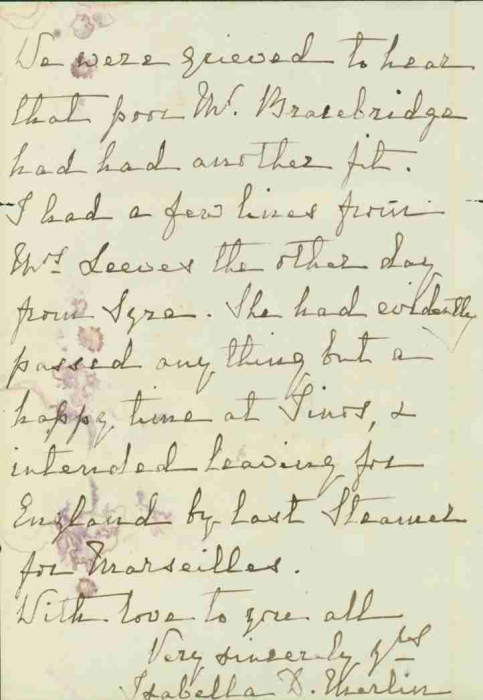 We were grieved to hear
that poor Mr. Bracebridge
had had another fit.
I had a few lines from
Mrs Leeves the other day
from Syra. She had evidently
passed any thing but a
happy time at Tinos, &
intended leaving for
England by last Steamer
for Marseilles.
With love to you all
Very sincerely yrs
Isabella D. Merlin